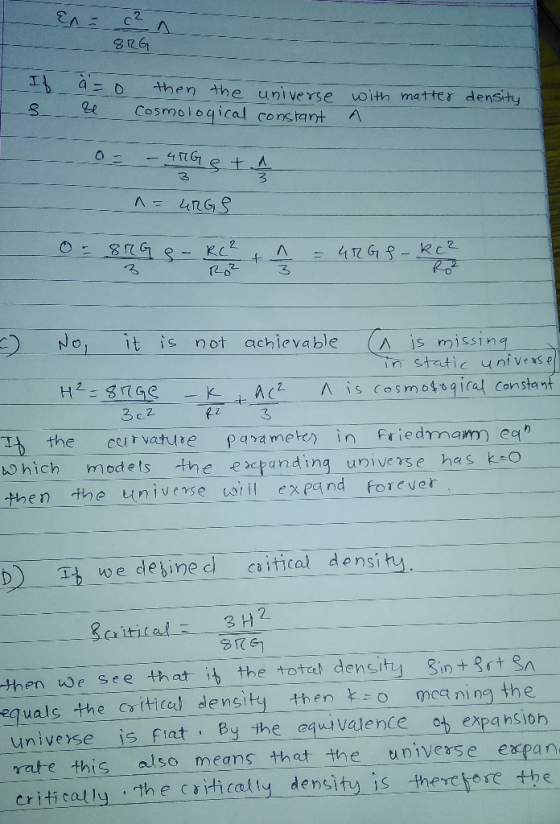 ε_Λ = c² / 8πG Λ
If ä = 0 then the universe with matter density
ρ & cosmological constant Λ
0 = - 4πG/3 ρ + Λ/3
Λ = 4πGρ
0 = 8πG/3 ρ - kc²/R₀² + Λ/3 = 4πGρ - kc²/R₀²
C) No, it is not achievable (Λ is missing
in static universe)
H² = 8πGε/3c² - k/R² + Λc²/3 Λ is cosmological constant
If the curvature parameter in Friedmann eqⁿ
which models the expanding universe has k=0
then the universe will expand forever.
D) If we defined critical density.
ρcritical = 3H²/8πG
then we see that if the total density ρm+ρr+ρΛ
equals the critical density then k=0 meaning the
universe is flat. By the equivalence of expansion
rate this also means that the universe expan
critically. the critically density is therefore the